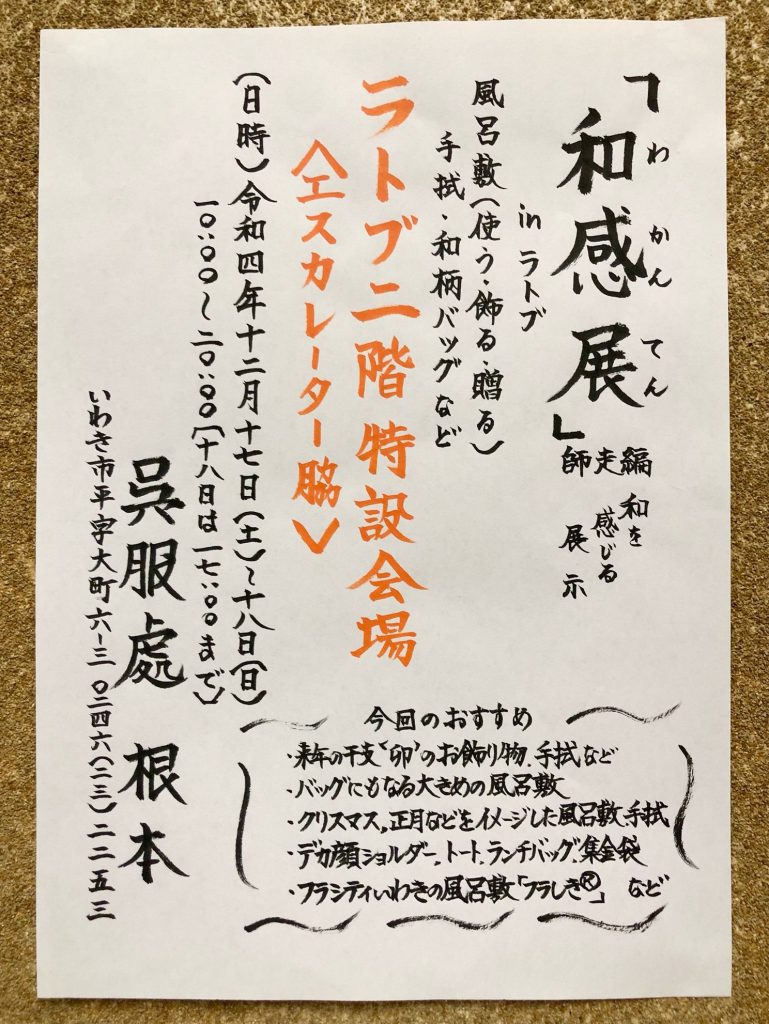 「和感展」
わかんてん
師走編
和を
感じる
展示
in ラトブ
風呂敷(使う・飾る・贈る)
手拭・和柄バッグなど
ラトブ二階特設会場
〈エスカレーター脇〉
(日時)令和四年十二月十七日(土)~十八日(日)
一〇:〇〇~二〇:〇〇〔十八日は一七:〇〇まで〕
呉服處 根本
いわき市平字大町六-三 〇二四六(二三)二二五三
今回のおすすめ
・来年の干支“卯”のお飾り物、手拭など
・バッグにもなる大きめの風呂敷
・クリスマス、正月などをイメージした風呂敷、手拭
・デカ顔ショルダー、トート、ランチバッグ、集金袋
・フラシティいわきの風呂敷「フラしき®」 など